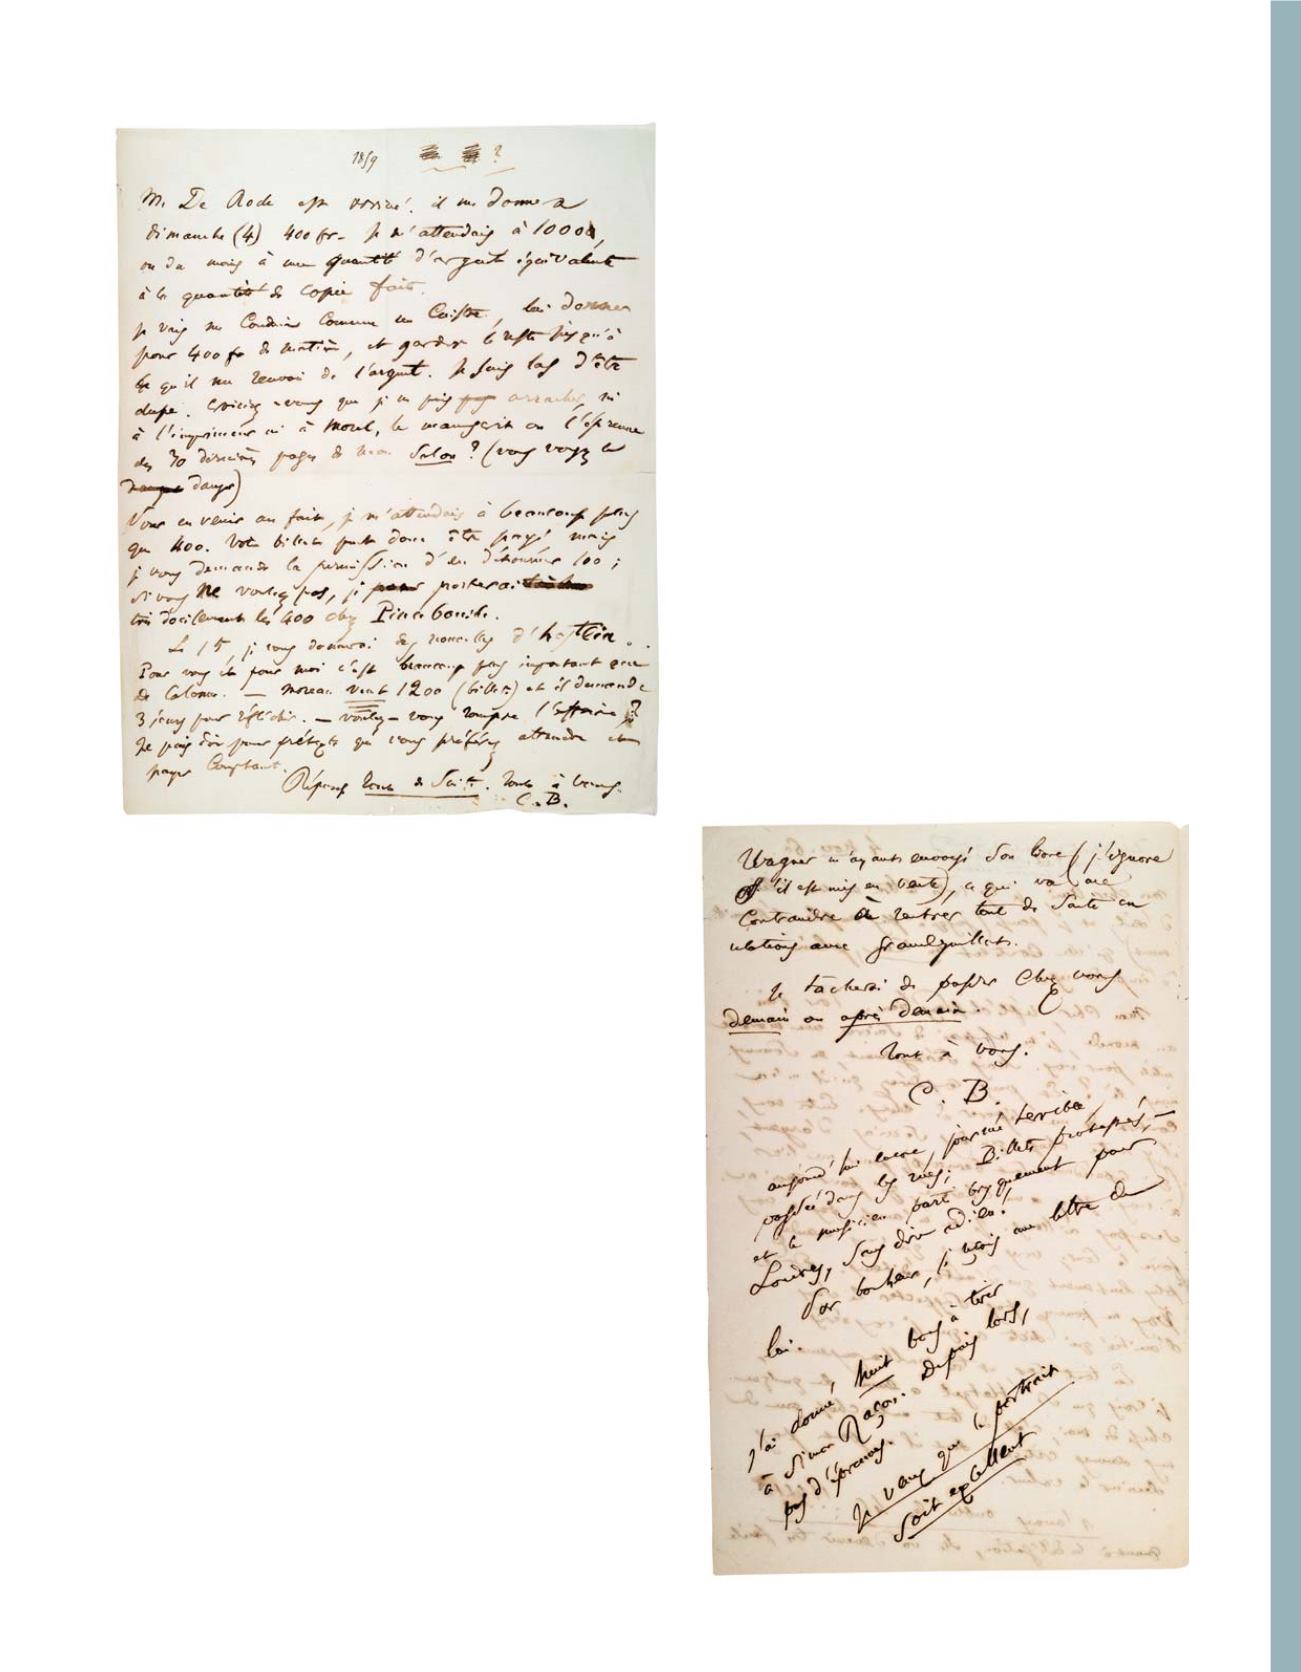 1859 ?
M. De Rode est arrivé. il me donnera
dimanche (4) 400 fr. Je m'attendais à 1000,
ou du moins à une quantité d'argent équivalente
à la quantité de copie faite.
Je vais me conduire comme un Cuistre, lui donner
pour 400 fr de matière, et garder le reste jusqu'à
ce qu'il me renvoie de l'argent. Je suis las d'être
dupe. Croiriez-vous que je ne puis pas arracher, ni
à l'imprimeur ni à Morel, le manuscrit ou l'épreuve
des 30 dernières pages de mon Salon ? (vous voyez le
danger)
Pour en venir au fait, je m'attendais à beaucoup plus
que 400. Votre billet peut donc être payé mais
je vous demande la permission d'en détourner 100 ;
si vous ne voulez pas, je porterai
très docilement les 400 chez Pincebourde.
Le 15, je vous donnerai des nouvelles d'hostein.
Pour vous et pour moi c'est beaucoup plus important que
de Calonne. — Moreau veut 1200 (billets) et il demande
3 jours pour réfléchir. — voulez-vous rompre l'affaire ?
Je puis dire pour prétexte que vous préférez attendre et
payer Comptant.
Réponse tout de Suite. Tout à vous.
C. B.
Wagner m'ayant envoyé son livre (j'ignore
s'il est mis en vente), ce qui va me
Contraindre à rentrer tout de suite en
relations avec Grandguillot.
Je tâcherai de passer Chez vous
demain ou après demain.
Tout à vous.
C. B.
aujourd'hui encore, journée terrible,
passée dans les rues ; Billets protestés, —
et le musicien part brusquement pour
Londres, sans dire adieu !
Par bonheur, je reçois une lettre de
lui.
J'ai donné huit bons à tirer
à Simon Raçon. Depuis lors,
pas d'épreuves.
Je veux que le portrait
soit excellent